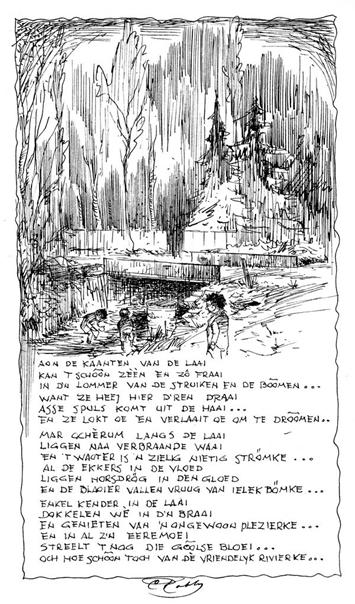 AON DE KAANTEN VAN DE LAAI
KAN 'T SCHÔÔN ZÈÈN EN ZÔ FRAAI
IN D'N LOMMER VAN DE STRUIKEN EN DE BÔÔMEN...
WANT ZE HEEJ HIER D'REN DRAAI
ASSE SPULS KOMT UIT DE HAAI...
EN ZE LOKT OE EN VERLAAIT OE OM TE DRÔÔMEN..
MAR OCHÈRUM LANGS DE LAAI
LIGGEN NAA VERBRAANDE WAAI
EN 'T WAOTER IS 'N ZIELIG NIETIG STRÔMKE...
AL DE EKKERS IN DE VLOED
LIGGEN HORSDRÔG IN DEN GLOED
EN DE BLAOIER VALLEN VRUUG VAN IELEK BÔMKE...
ENKEL KENDER IN DE LAAI
DOKKELEN WÈ IN D'N BRAAI
EN GENIETEN VAN 'N ONGEWOON PLEZIERKE...
EN IN AL Z'N EEREMOEI
STREELT T NOG DIE GÔÔLSE BLOEI...
OCH HOE SCHÔÔN TOCH VAN DE VRIENDELYK RIVIERKE...